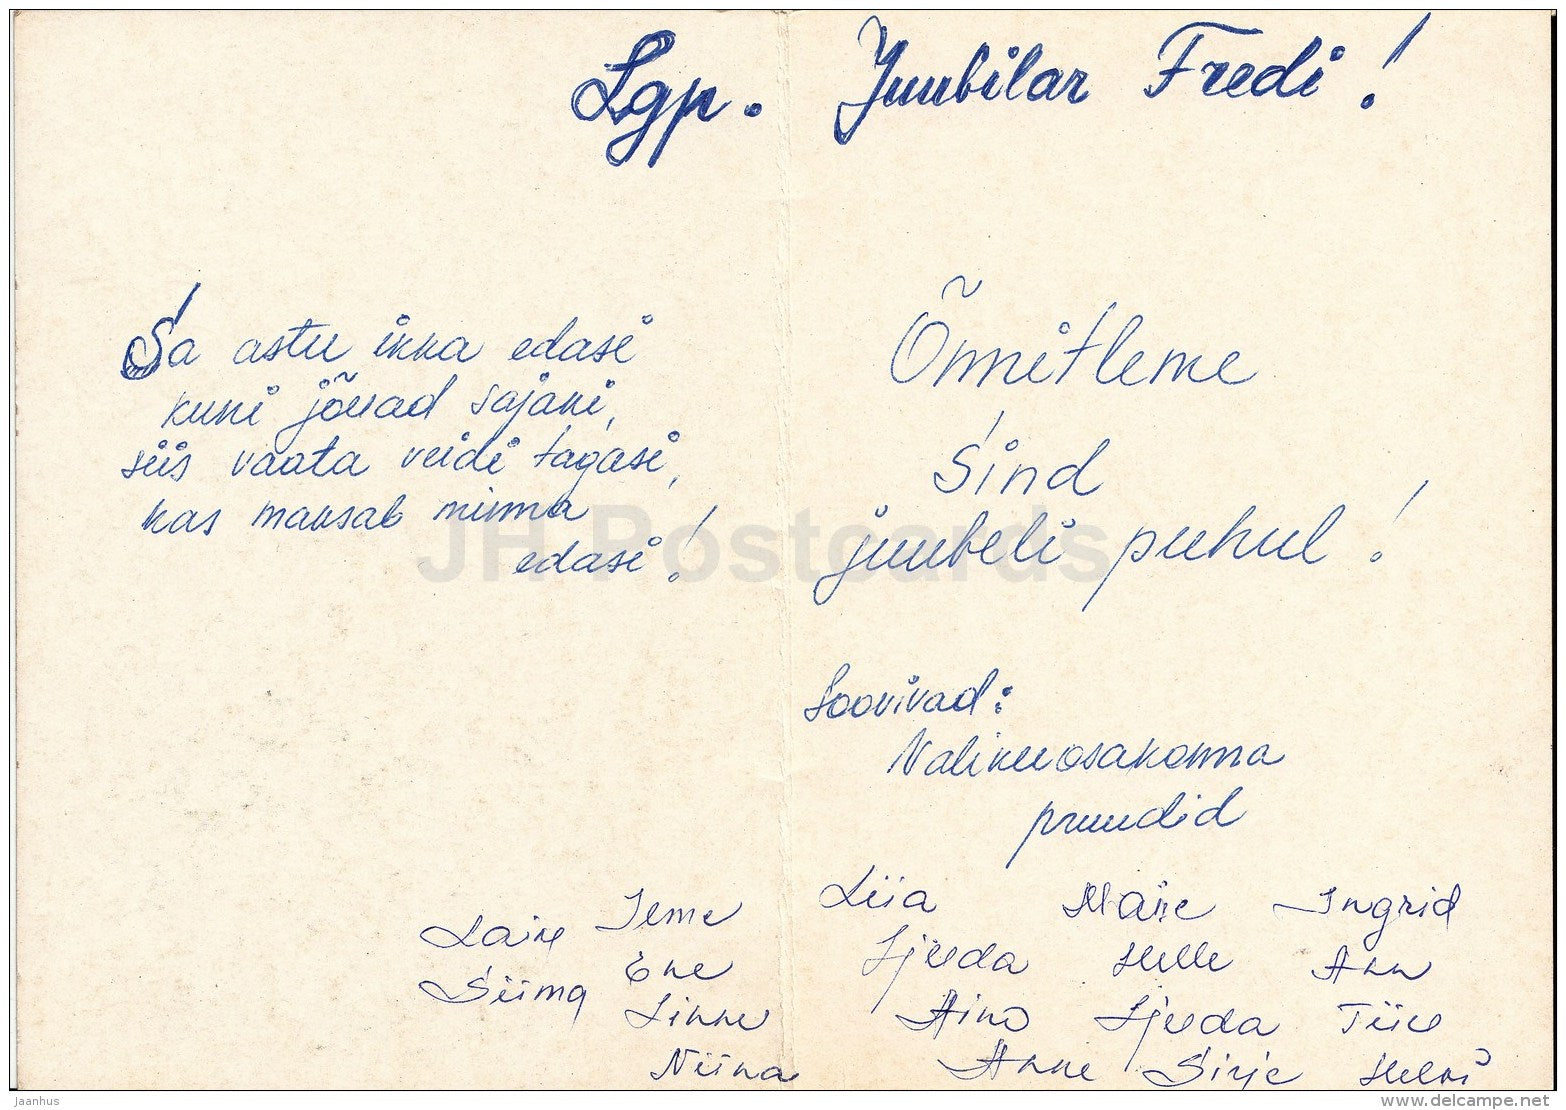 Lgp. Juubilar Fredi!
Sa astu ikka edasi
kuni jõuad sajani,
siis vaata veidi tagasi,
kas maksab minna
edasi!
Õnnitleme
Sind
juubeli puhul!
Soovivad:
Valikuosakonna
pruudid
Liia Maire Ingrid
Ljuda Helle Ann
Aino Ljuda Tiiu
Anne Sirje Helmi
Laine Teme
Siima Ene
Linne
Niina
JH Postcards
jaanhus
www.delcampe.net